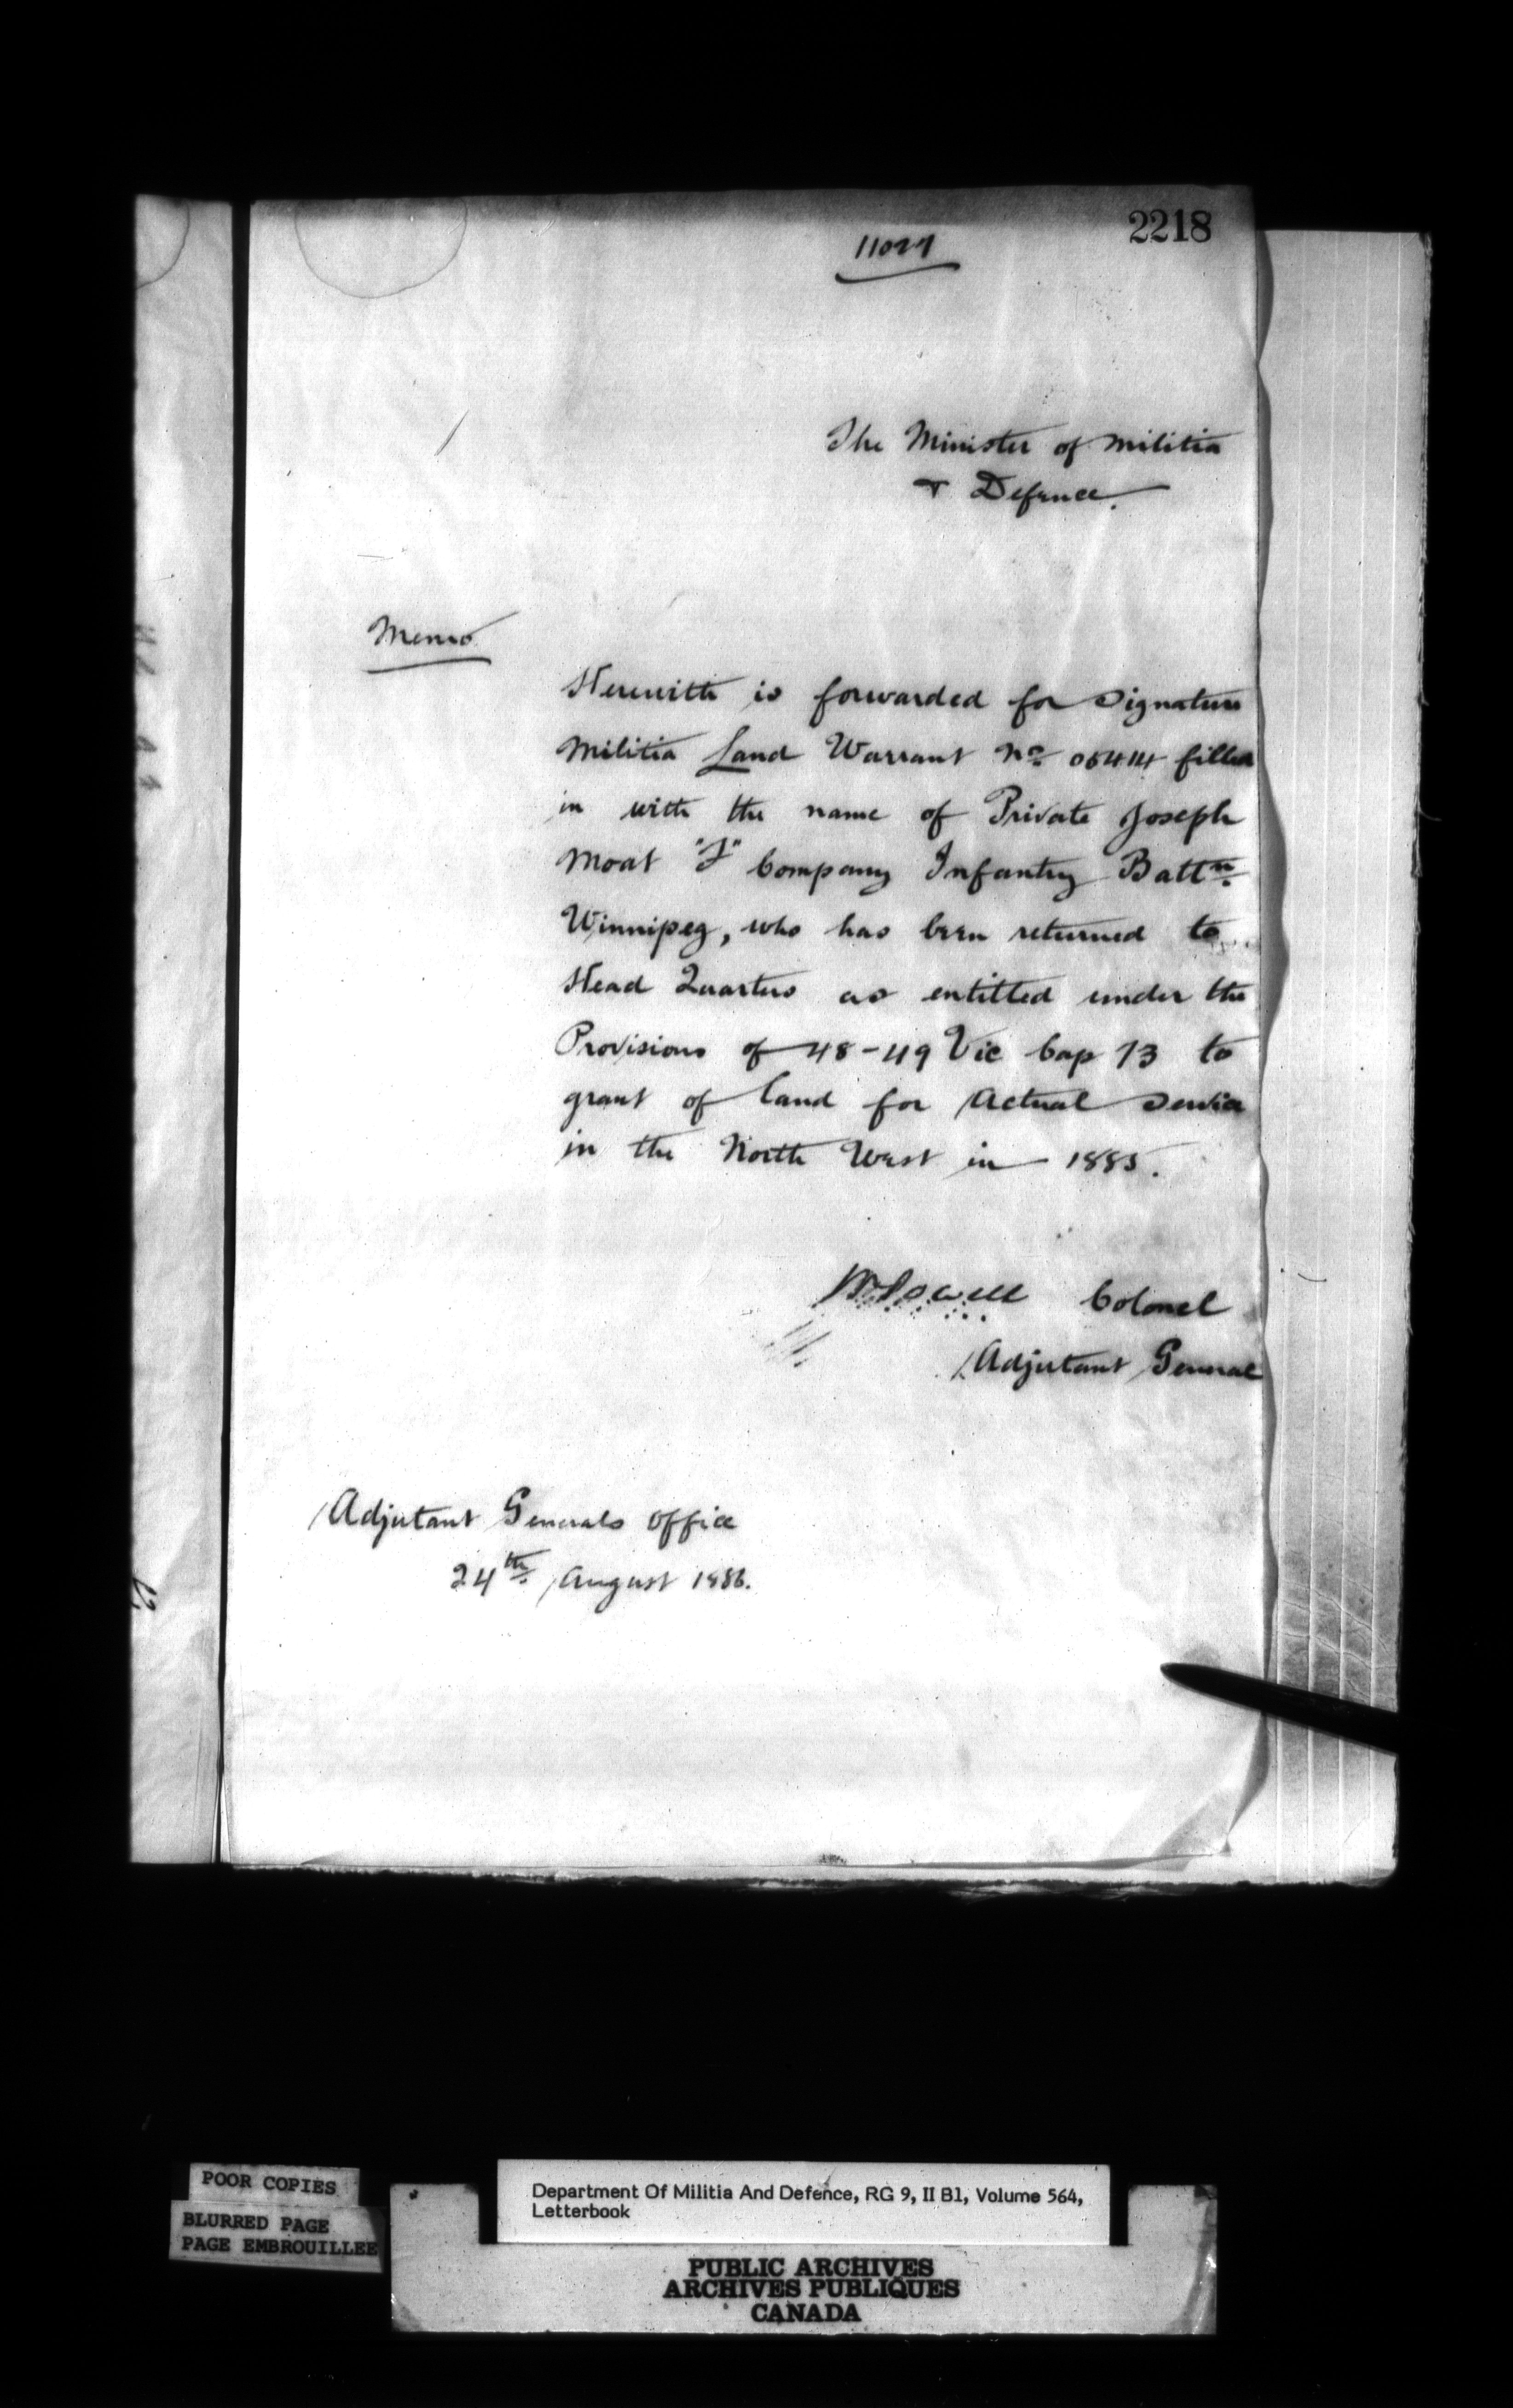 2218
11027
The Minister of Militia
& Defence.
Memo
Herewith is forwarded for signature
Militia Land Warrant No 05414 filled
in with the name of Private Joseph
Moat "F" Company Infantry Battn
Winnipeg, who has been returned to
Head Quarters as entitled under the
Provisions of 48-49 Vic Cap 73 to
grant of land for Actual Service
in the North West in 1885.
WPowell Colonel
Adjutant General
Adjutant Generals Office
24th August 1886.
POOR COPIES
BLURRED PAGE
PAGE EMBROUILLEE
Department Of Militia And Defence, RG 9, II B1, Volume 564,
Letterbook
PUBLIC ARCHIVES
ARCHIVES PUBLIQUES
CANADA